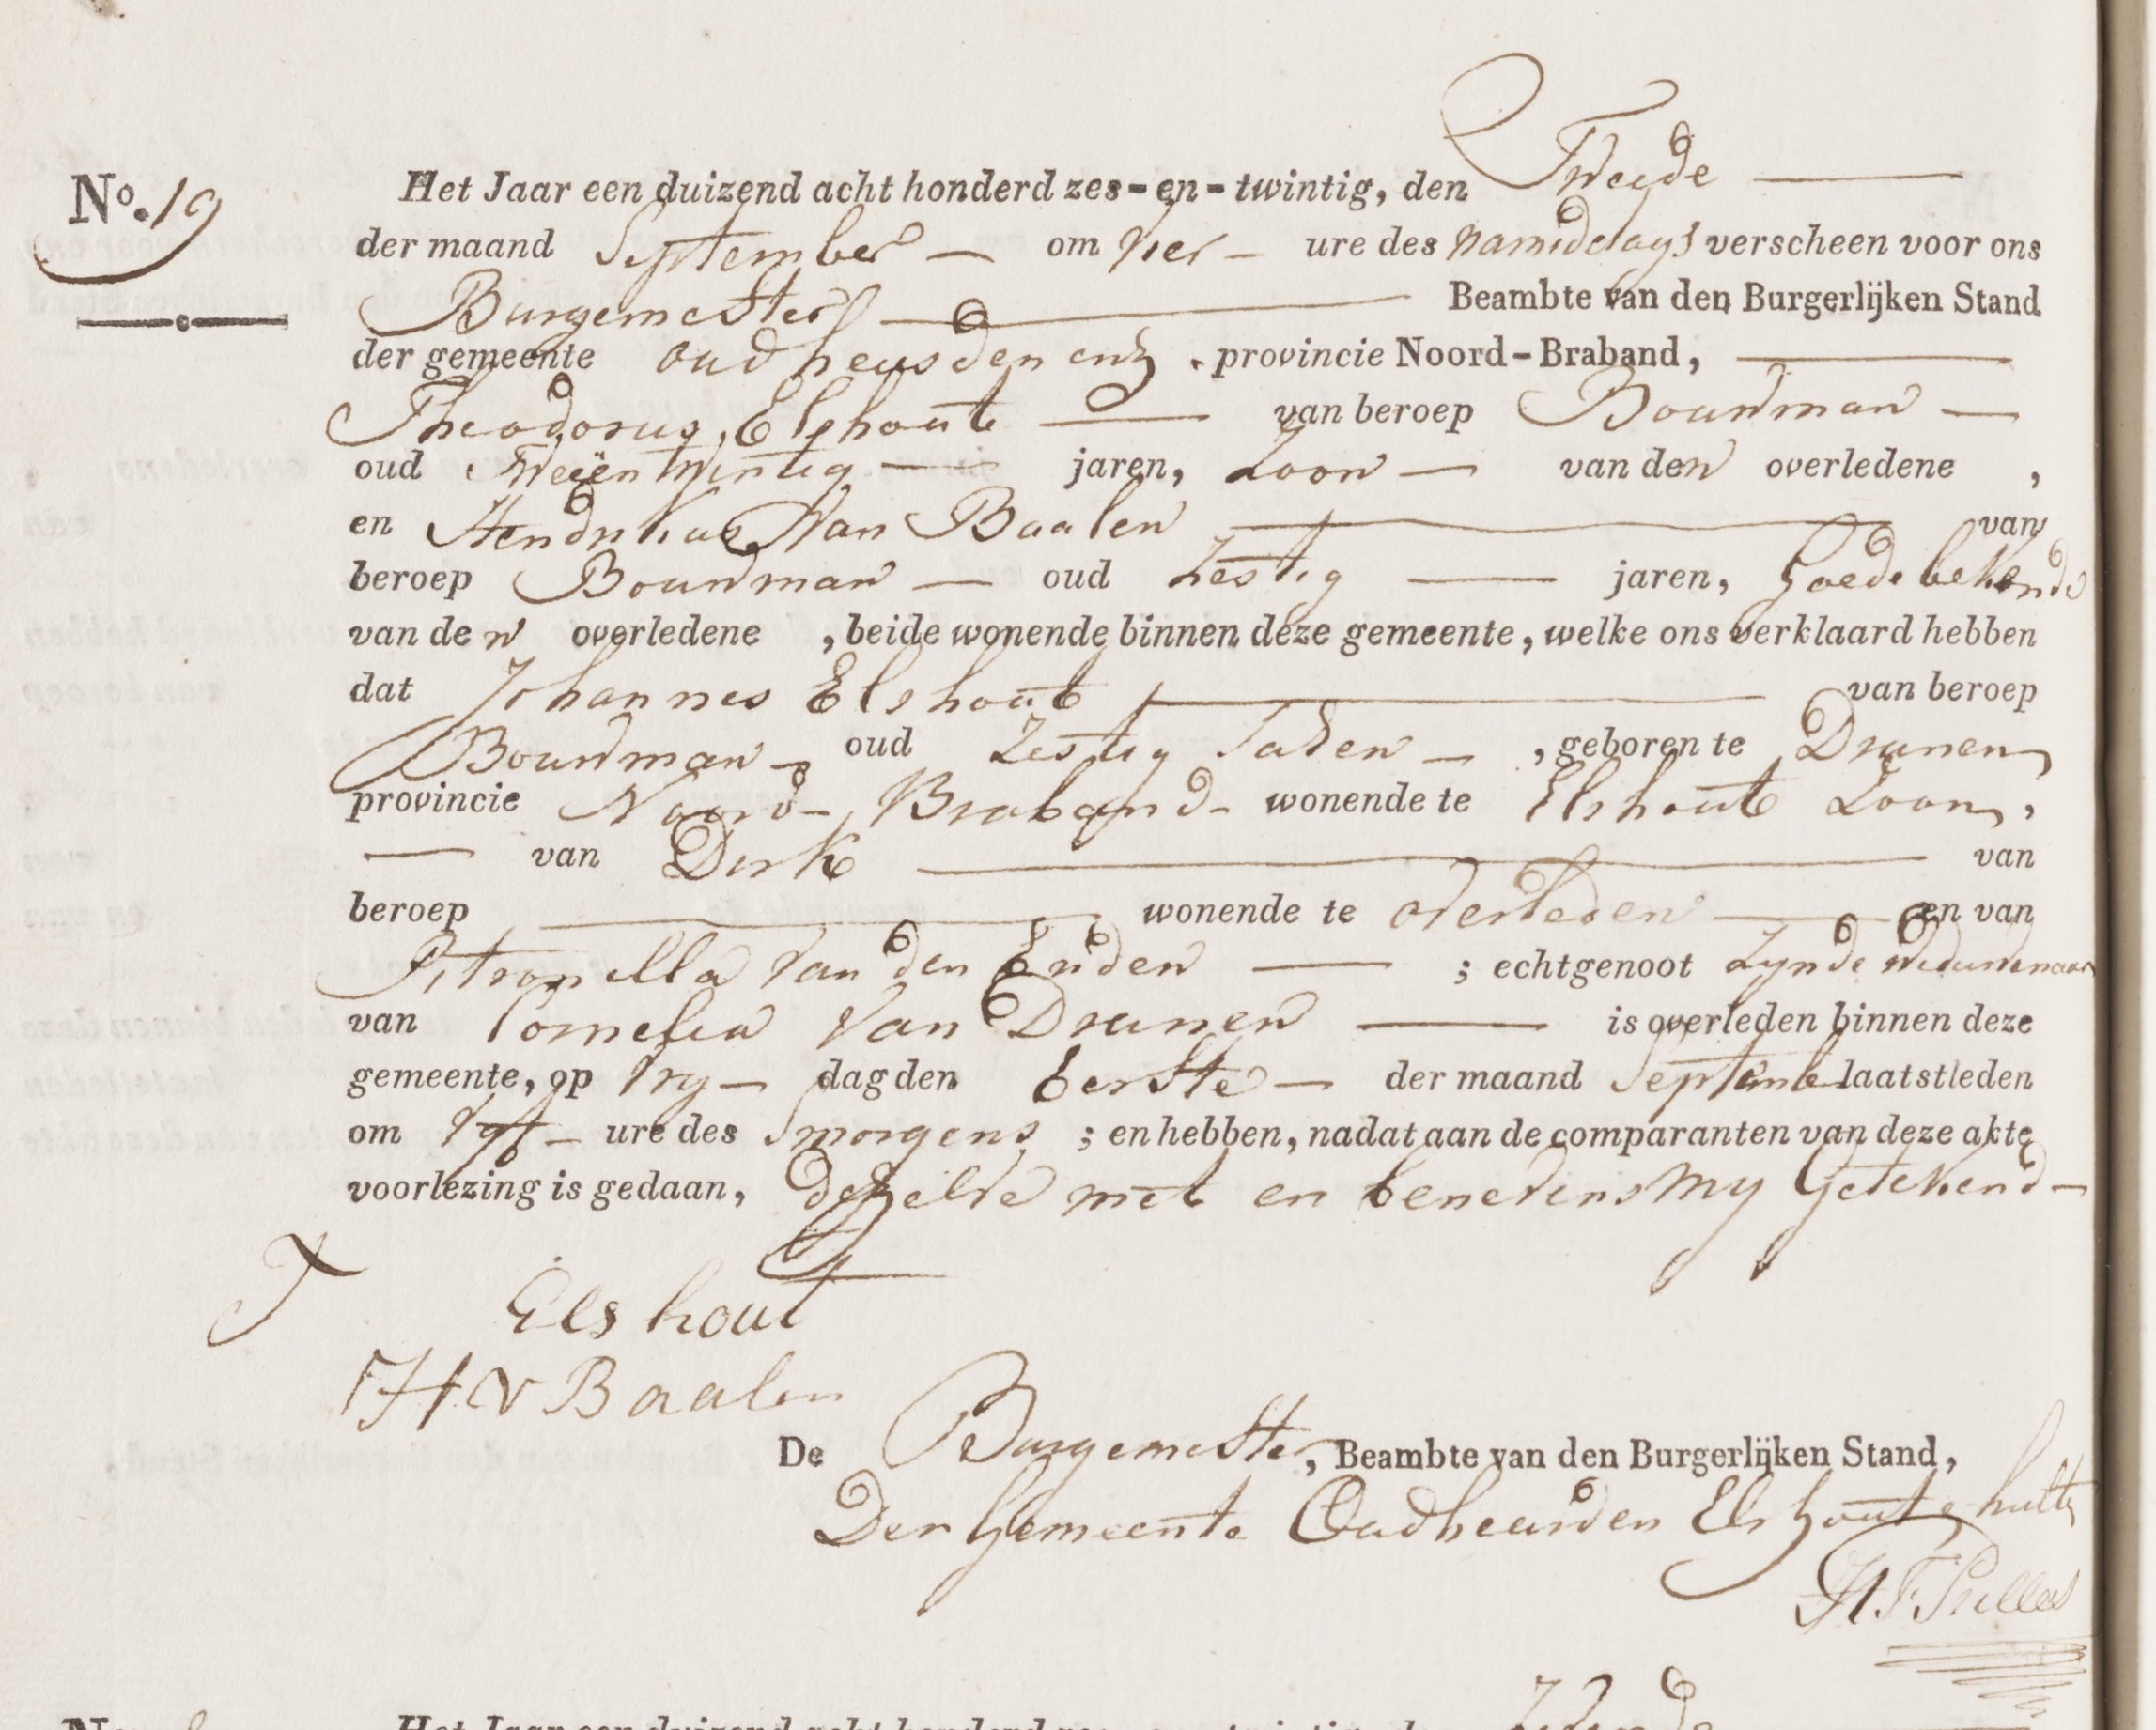 No. 19
Het Jaar een duizend acht honderd zes-en-twintig, den Tweede
der maand September om vier ure des namiddags verscheen voor ons
Burgemeester Beambte van den Burgerlijken Stand
der gemeente oudheusden enz. provincie Noord-Braband,
Theodorus Elshout van beroep Bouwman
oud Tweeën Twintig jaren, Zoon van den overledene ,
en Hendrikus Van Baalen van
beroep Bouwman oud Zestig jaren, goede bekende
van den overledene , beide wonende binnen deze gemeente, welke ons verklaard hebben
dat Johannes Elshout van beroep
Bouwman oud Zestig Jaren , geboren te Drunen
provincie Noord-Braband wonende te Elshout Zoon ,
van Dirk van
beroep wonende te overleden en van
Pitronella van den Enden ; echtgenoot Zynde Weduwenaar
van Cornelia van Drunen is overleden binnen deze
gemeente, op Vry dag den Eerste der maand Septemb laatstleden
om Vyf ure des Smorgens ; en hebben, nadat aan de comparanten van deze akte
voorlezing is gedaan, dezelve met en benevens My Getekend
T Elshout
H v Baalen
De Burgemeester, Beambte van den Burgerlijken Stand,
Der Gemeente Oudheusden Elshout &
Het Jaar een duizend acht honderd